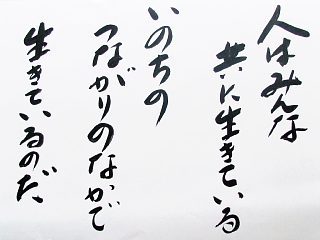 人はみんな
共に生きている
いのちの
つながりのなかで
生きているのだ